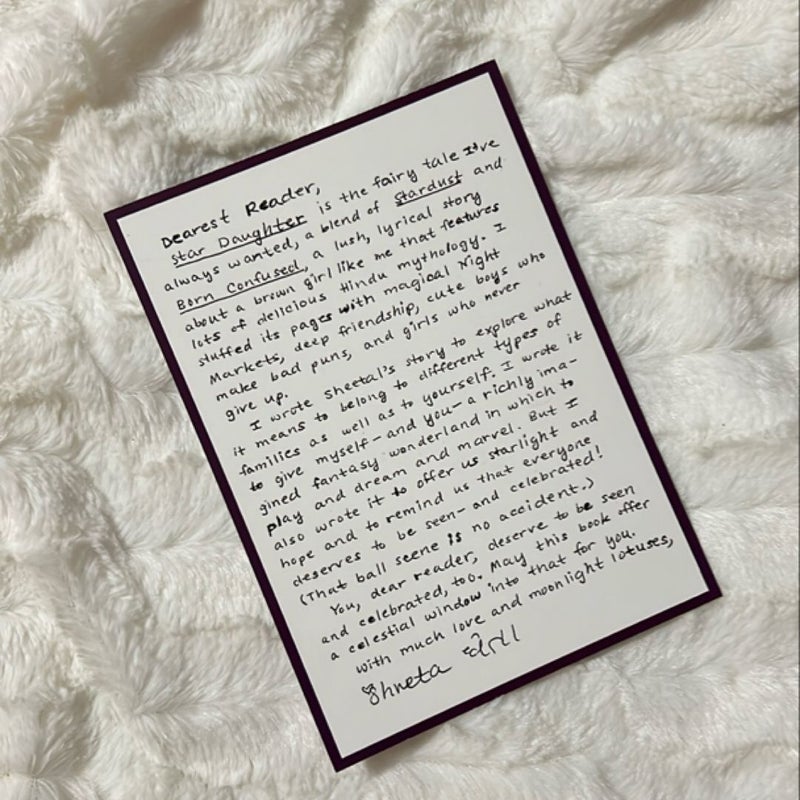 Dearest Reader,
Star Daughter is the fairy tale I've
always wanted, a blend of Stardust and
Born Confused, a lush, lyrical story
about a brown girl like me that features
lots of delicious Hindu mythology. I
stuffed its pages with magical Night
Markets, deep friendship, cute boys who
make bad puns, and girls who never
give up.
I wrote Sheetal's story to explore what
it means to belong to different types of
families as well as to yourself. I wrote it
to give myself—and you—a richly ima-
gined fantasy wonderland in which to
play and dream and marvel. But I
also wrote it to offer us starlight and
hope and to remind us that everyone
deserves to be seen—and celebrated!
(That ball scene is no accident.)
You, dear reader, deserve to be seen
and celebrated, too. May this book offer
a celestial window into that for you.
with much love and moonlight lotuses,
Shveta